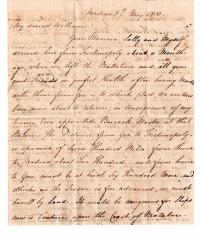 Madras 5th May 1810
My dearest William
Your Mamma, Sally and Myself
arrived here from Trichinopoly about a Month
ago, when we left the Battalion and all your
good Friends in perfect Health after having been
with them, to which place we are now
soon about to return, in consequence of my
having been appointed Barrack Master at that
Station. The Distance from Goa to Trichinopoly
is upwards of Seven Hundred Miles, from thence
to Madras about Two Hundred, and from hence
to Goa must be at least Six Hundred More, and
which as the Season is far advanced, we must
travel by Land. It would be dangerous for Ships
now to venture upon the Coast of Malabar.